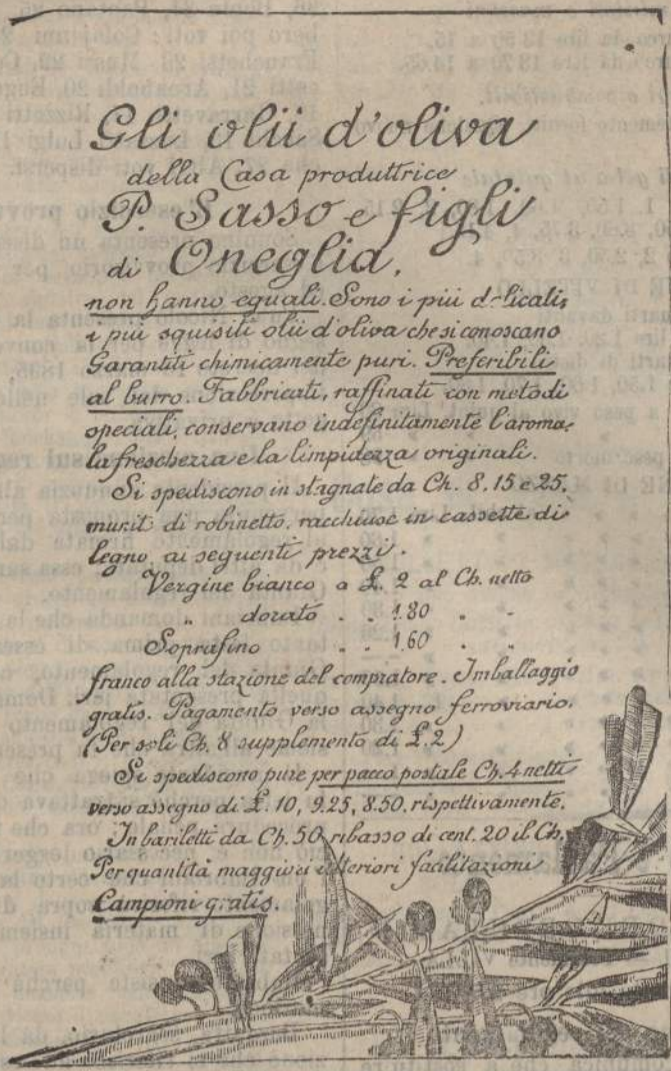 Gli olii d'oliva
della Casa produttrice
P. Sasso e figli
di Oneglia,
non hanno eguali. Sono i più delicati,
i più squisiti olii d'oliva che si conoscano
Garantiti chimicamente puri. Preferibili
al burro. Fabbricati, raffinati con metodi
speciali, conservano indefinitamente l'aroma,
la freschezza e la limpidezza originali.
Si spediscono in stagnate da Ch. 8, 15 e 25,
muniti di robinetto, racchiuse in cassette di
legno, ai seguenti prezzi.
Vergine bianco a £. 2 al Ch. netto
" dorato . . 1.80 . .
Soprafino . . 1.60 . .
franco alla stazione del compratore. Imballaggio
gratis. Pagamento verso assegno ferroviario.
(Per soli Ch. 8 supplemento di £. 2)
Si spediscono pure per pacco postale Ch. 4 netti
verso assegno di £. 10, 9.25, 8.50. rispettivamente.
In bariletti da Ch. 50 ribasso di cent. 20 il Ch.
Per quantità maggiori ulteriori facilitazioni
Campioni gratis.